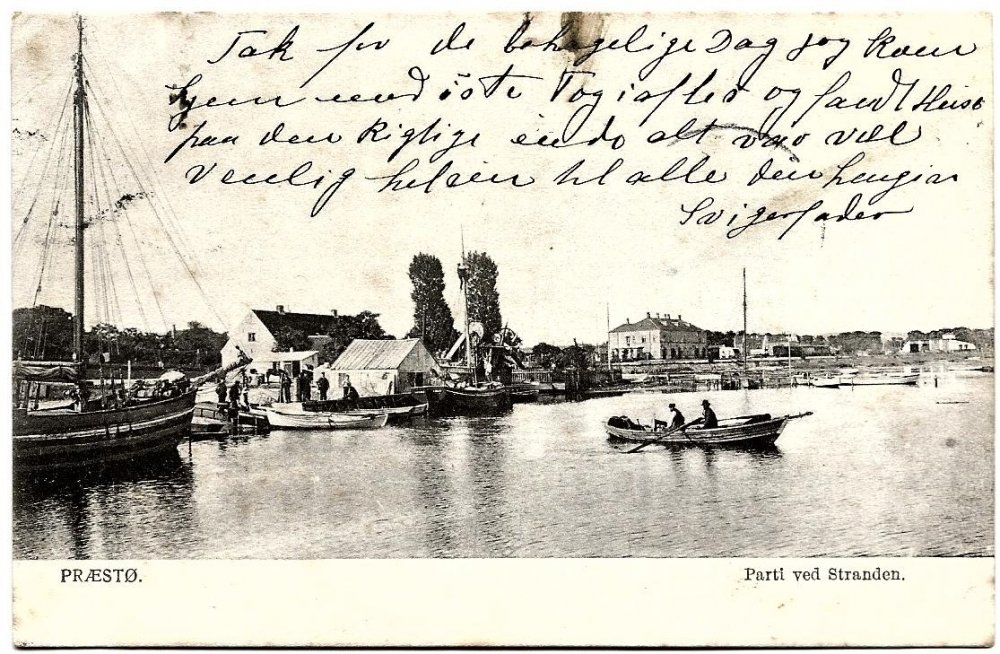 Tak for de behagelige Dag jeg kom
hjem med siste Tog isfted og fandt Huset
paa den Rigtige endo alt var vel
Venlig helsen til alle den hengiar
Svigerfader
PRÆSTØ.
Parti ved Stranden.